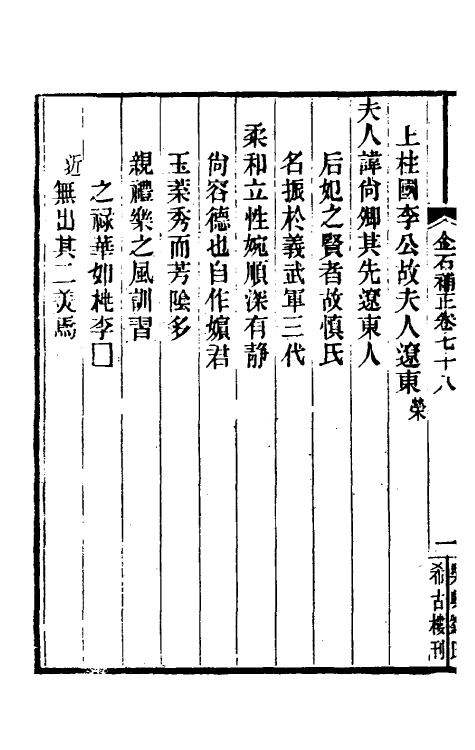 金石補正卷七十八
一
希古樓刊
上柱國李公故夫人遼東榮
夫人諱尚卿其先遼東人
后妃之賢者故慎氏
名振於義武軍三代
柔和立性婉順深有靜
尙容德也自作嬪君
玉葉秀而芳陰多
親禮樂之風訓習
之祿華如桃李□
近無出其二美焉